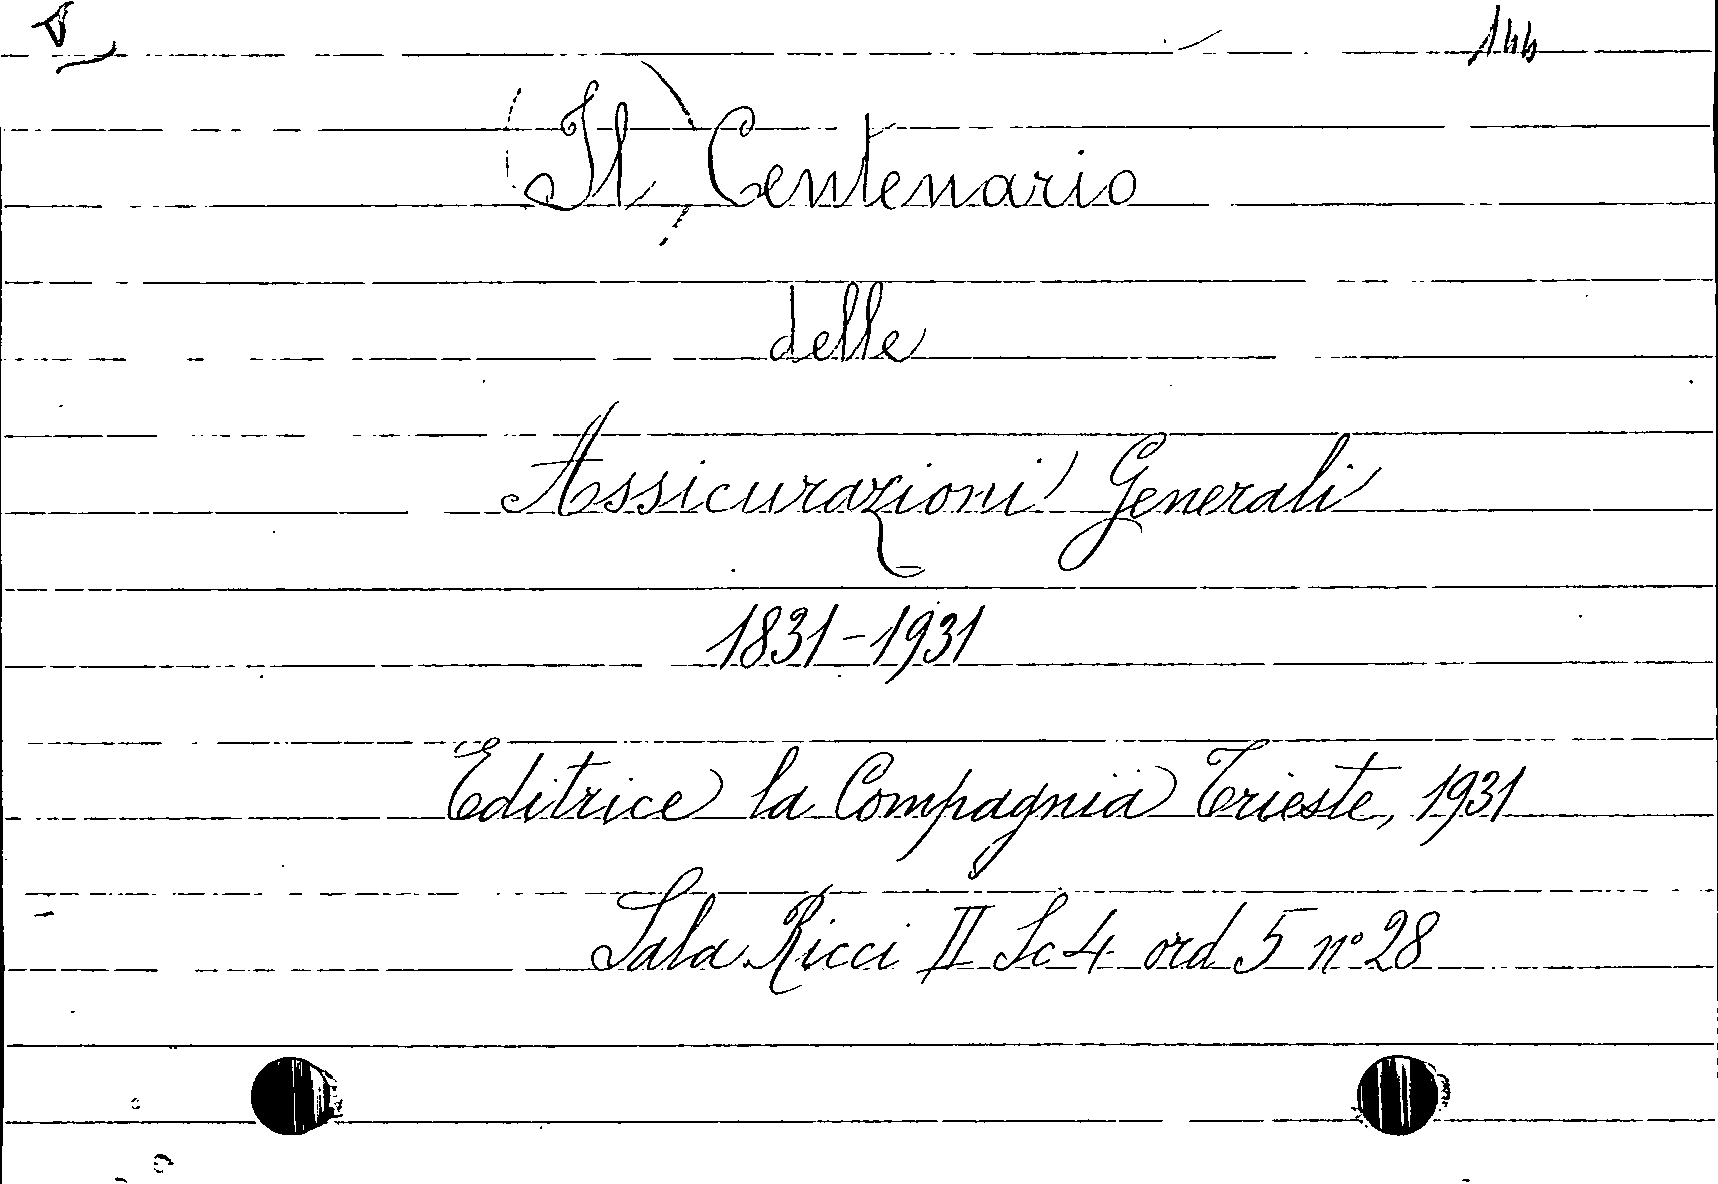 144
(Il) Centenario
delle
Assicurazioni Generali
1831-1931
Editrice la Compagnia Trieste, 1931
Sala Ricci II Sc 4 ord 5 n° 28